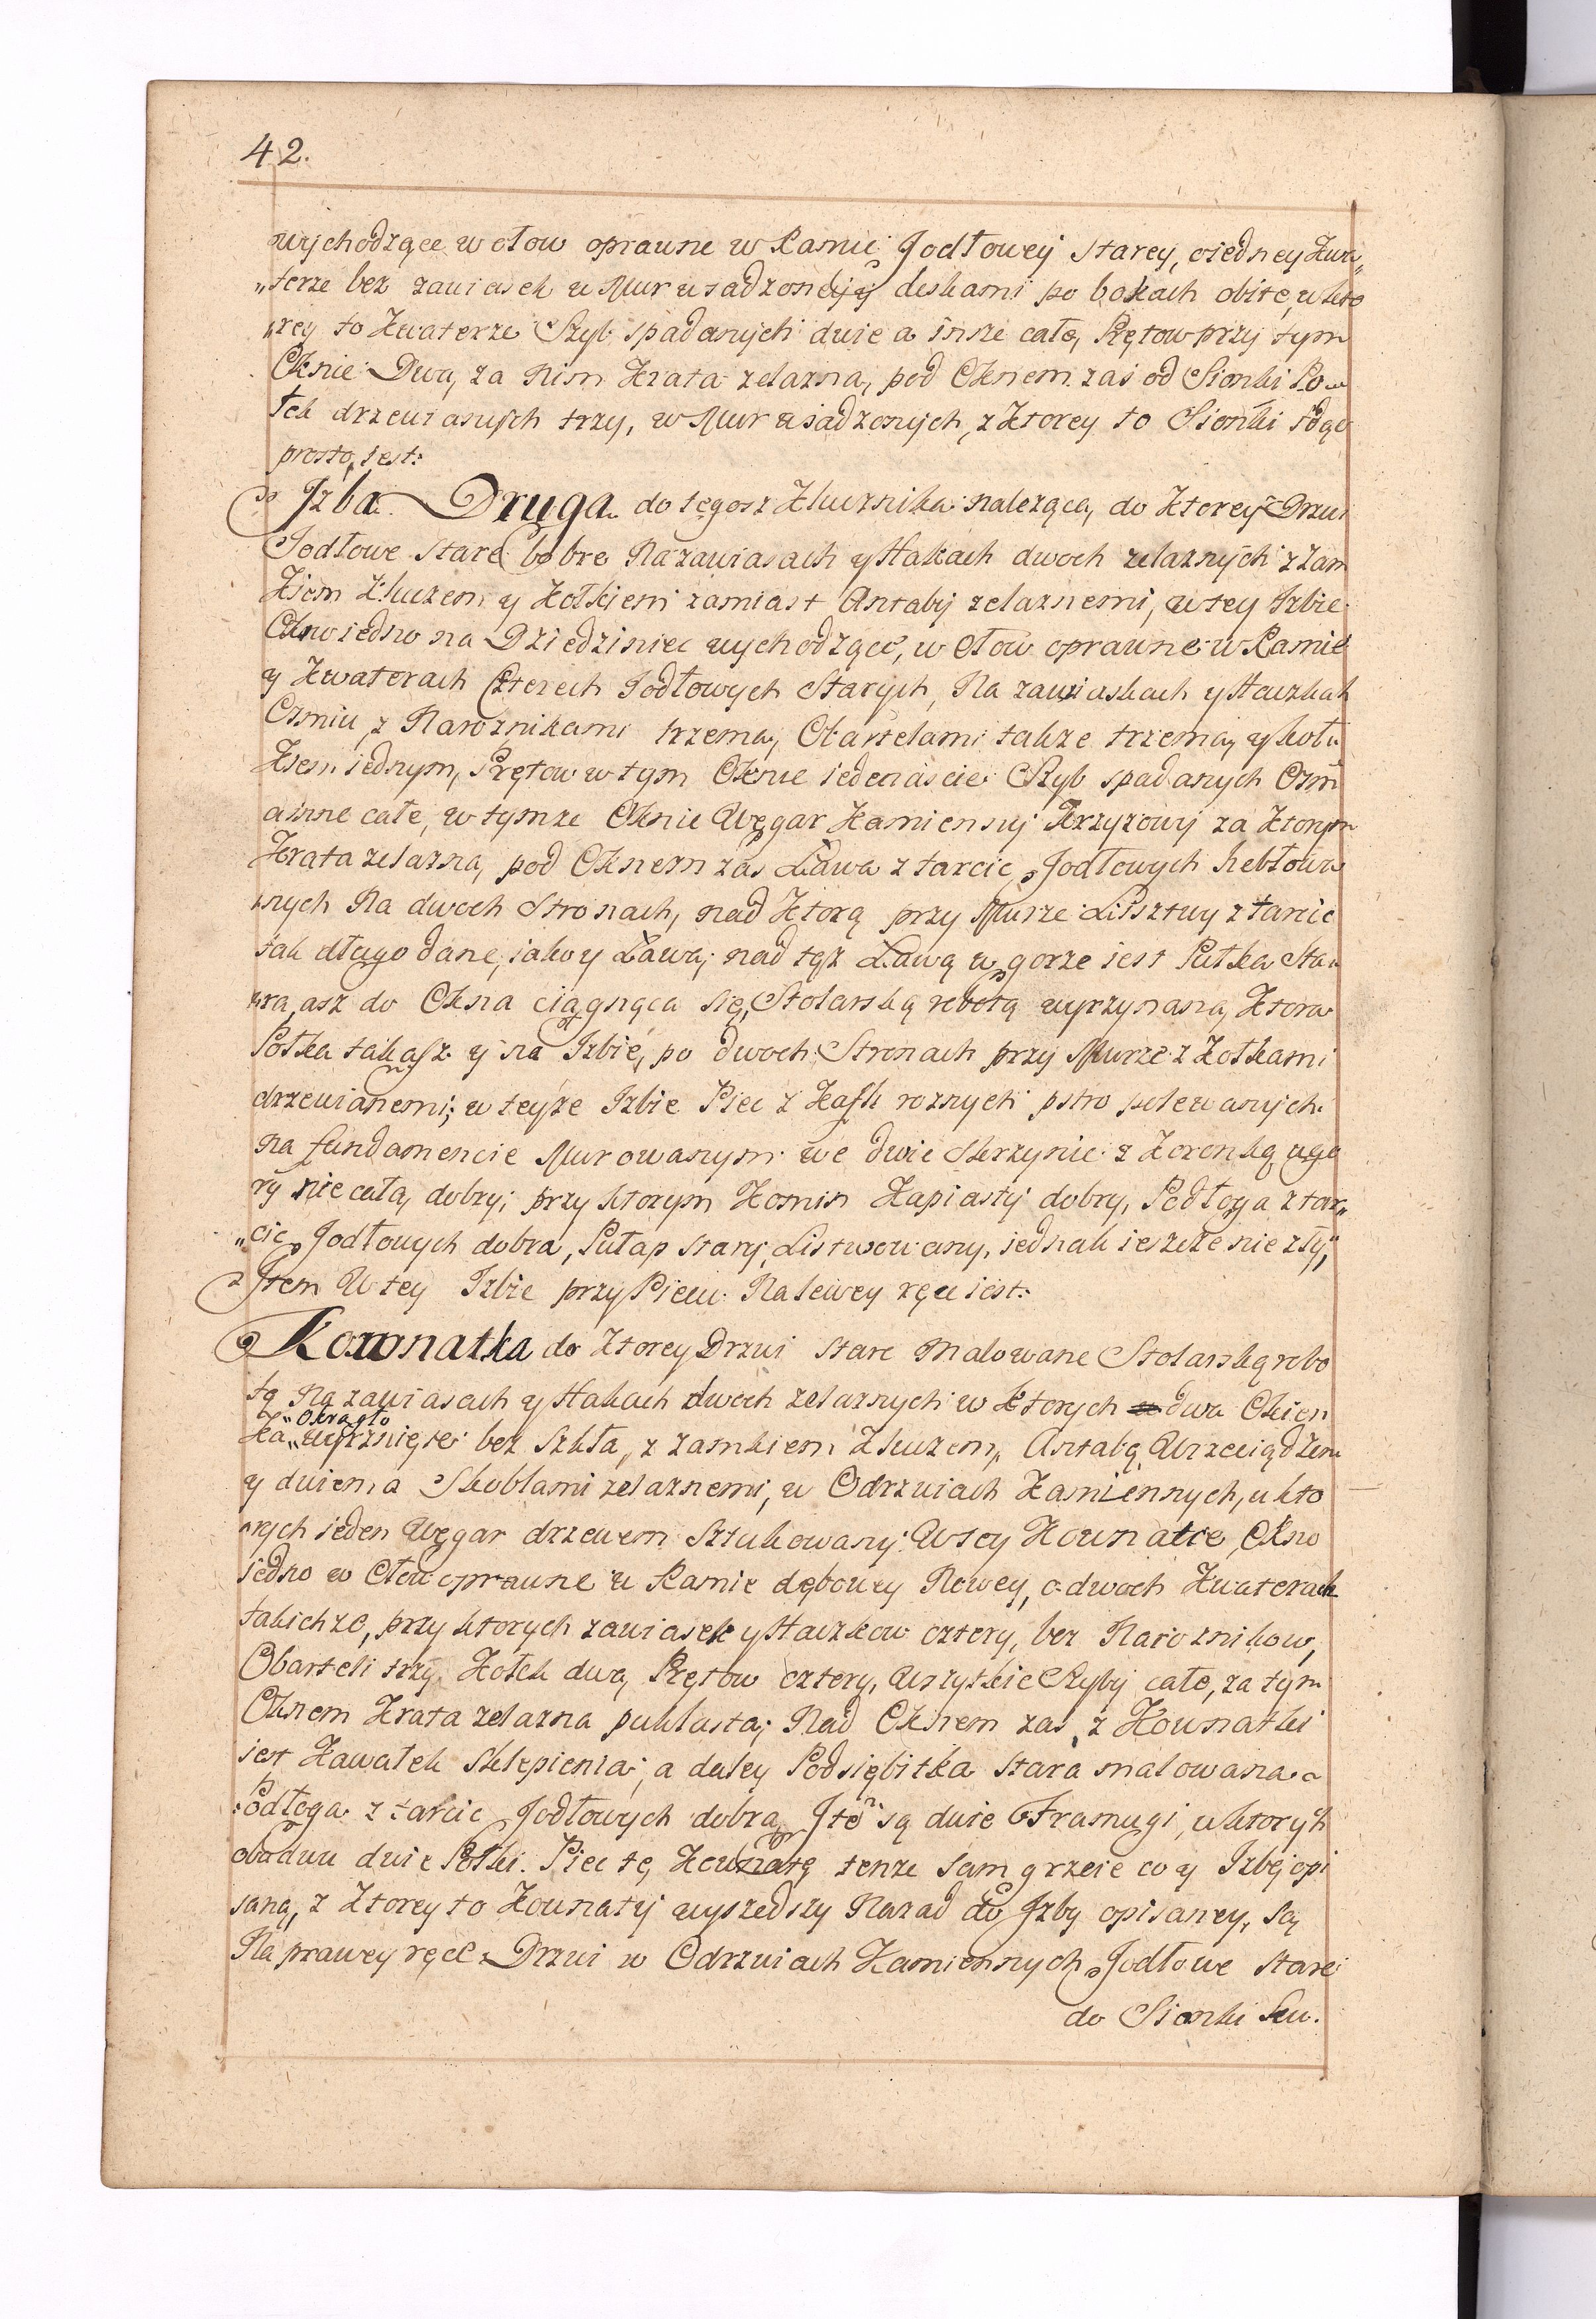 42.
wychodzące w ołow oprawne w Ramie Jodłowey starey, o iedney Kwa„
„terze bez zawiasek w Mur wsadzoney y deskami po bokach obite, w kto
„rey to Kwaterze Szyb spadanych dwie a insze całe, Prętow przy tym
Oknie Dwa, za Nim Krata zelazna, pod Oknem zas od Sionki Ko„
łek drzewianych trzy, w Mur wsadzonych, z Ktorey to Sionki idąc
prosto, iest:
Izba Druga do tegosz Klucznika naleząca, do Ktorey Drzwi
Jodłowe stare dobre Na zawiasach y Hakach dwoch zelaznych z Zam
Kiem Kluczem y Kołkiem zamiast Antaby zelaznemi, w tey Izbie
Okno iedno na Dziedziniec wychodzące, w Ołow oprawne w Ramie
y Kwaterach Czterech Jodłowych Starych, Na zawiaskach y Haczkach
Osmiu, z Naroznikami trzema, Obartelami takze trzema, y koł„
Kiem iednym, Prętow w tym Oknie iedenascie Szyb spadanych Osm
a inne całe, w tymze Oknie Węgar Kamienny Krzyzowy za Ktorym
Krata zelazna, pod Oknem zas Ława z tarcic Jodłowych heblowa
„nych Na dwoch Stronach, nad Ktorą przy Murze Lisztwy z tarcic
tak długo dane, iako y Ława, nad tąz Ławą w gorze iest Pułka Sta„
„ra, asz do Okna ciągnąca się, Stolarską robotą wyrzynana, Ktora
Połka takasz y na Izbie, po dwoch Stronach przy Murze z Kołkami
drzewianemi; w teyze Izbie Piec z Kafli roznych pstro polewanych
na fundamencie Murowanym we dwie skrzynie z Koronką u go
ry nie całą, dobry; przy ktorym Komin Kapiasty dobry, Podłoga z tar„
„cic Jodłowych dobra, Pułap stary, Listwowany, iednak ieszcze nie zły,
Item W tey Izbie przy Piecu Na lewey ręce iest:
Kownatka do Ktorey Drzwi stare Malowane Stolarską robo
tą Na zawiasach y Hakach dwoch zelaznych w Ktorych dwa Okien
„Okrągło
Ka„ wyrznięte bez Szkła, z zamkiem Kluczem, Antabą, Wrzeciądzem
y dwiema Skoblami zelaznemi, w Odrzwiach Kamiennych, u kto
„rych ieden Węgar drzewem Sztukowany. W tey Kownatce, Okno
iedno w Ołow oprawne w Ramie dębowey Nowey, o dwoch Kwaterach
takichze, przy ktorych zawiasek y Haczkow cztery, bez Naroznikow,
Obarteli trzy, Kołek dwa, Prętow cztery, Wszytkie Szyby całe, za tym
Oknem Krata zelazna puklasta; Nad Oknem zas, z Kownatki
iest Kawałek sklepienia, a daley Podsiębitka stara malowana
Podłoga z tarcic Jodłowych dobra, Itẽ są dwie Framugi, w ktorych
obodwu dwie Połki. Piec tę Kownatę tenze sam grzeie co y Izbę opi
saną, z Ktorey to Kownaty wyszedszy Nazad do Izby opisaney, są
Na prawey ręce Drzwi w Odrzwiach Kamiennych Jodłowe stare
do Sionki